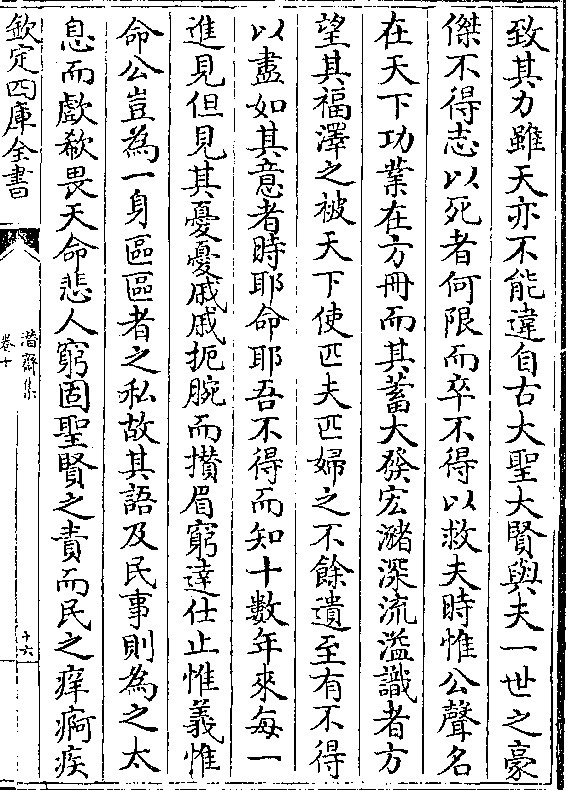 致其力雖天亦不能違自古大聖大賢與夫一世之豪
傑不得志以死者何限而卒不得以救夫時惟公聲名
在天下功業在方冊而其蓄大發宏瀦深流溢識者方
望其福澤之被天下使匹夫匹婦之不餘遺至有不得
以盡如其意者時耶命耶吾不得而知十數年來每一
進見但見其憂憂戚戚扼腕而攢眉窮達仕止惟義惟
命公豈為一身區區者之私故其語及民事則為之太
息而歔欷畏天命悲人窮固聖賢之責而民之痒痾疾
欽定四庫全書
潛齋集
卷十
十六